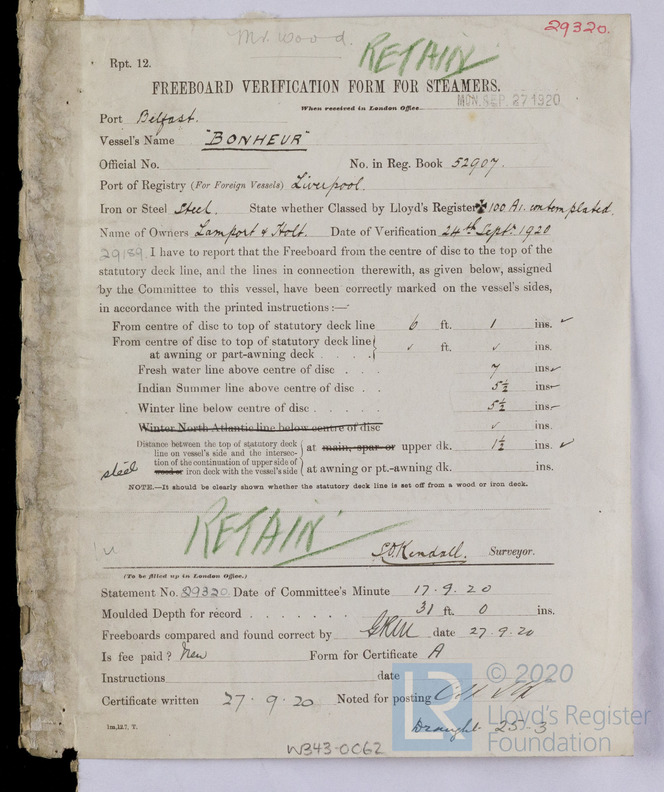 29320.
Mr. Wood.
RETAIN
Rpt. 12.
FREEBOARD VERIFICATION FORM FOR STEAMERS.
When received in London Office
MON. SEP. 27 1920
Port Belfast.
Vessel's Name "BONHEUR"
Official No. No. in Reg. Book 52907.
Port of Registry (For Foreign Vessels) Liverpool.
Iron or Steel Steel. State whether Classed by Lloyd's Register ✠ 100 A1. contemplated.
Name of Owners Lamport & Holt. Date of Verification 24th Septr 1920
29189. I have to report that the Freeboard from the centre of disc to the top of the
statutory deck line, and the lines in connection therewith, as given below, assigned
by the Committee to this vessel, have been correctly marked on the vessel's sides,
in accordance with the printed instructions:—
From centre of disc to top of statutory deck line 6 ft. 1 ins. ✓
From centre of disc to top of statutory deck line
at awning or part-awning deck . . . . ✓ ft. ✓ ins.
Fresh water line above centre of disc . . . 7 ins. ✓
Indian Summer line above centre of disc . . 5½ ins. ✓
Winter line below centre of disc . . . . 5½ ins. ✓
Winter North Atlantic line below centre of disc ✓ ins.
Distance between the top of statutory deck
line on vessel's side and the intersec-
tion of the continuation of upper side of
steel wood or iron deck with the vessel's side
at main, spar or upper dk. 1½ ins. ✓
at awning or pt.-awning dk. ins.
NOTE.—It should be clearly shown whether the statutory deck line is set off from a wood or iron deck.
RETAIN
S.O. Kendall. Surveyor.
(To be filled up in London Office.)
Statement No. 29320 Date of Committee's Minute 17.9.20
Moulded Depth for record . . . . . . . 31 ft. 0 ins.
Freeboards compared and found correct by date 27.9.20
Is fee paid? New Form for Certificate A
Instructions date
Certificate written 27.9.20 Noted for posting
1m,12.7, T.
Draught 25.3
W343-0062
LR
© 2020
Lloyd's Register
Foundation